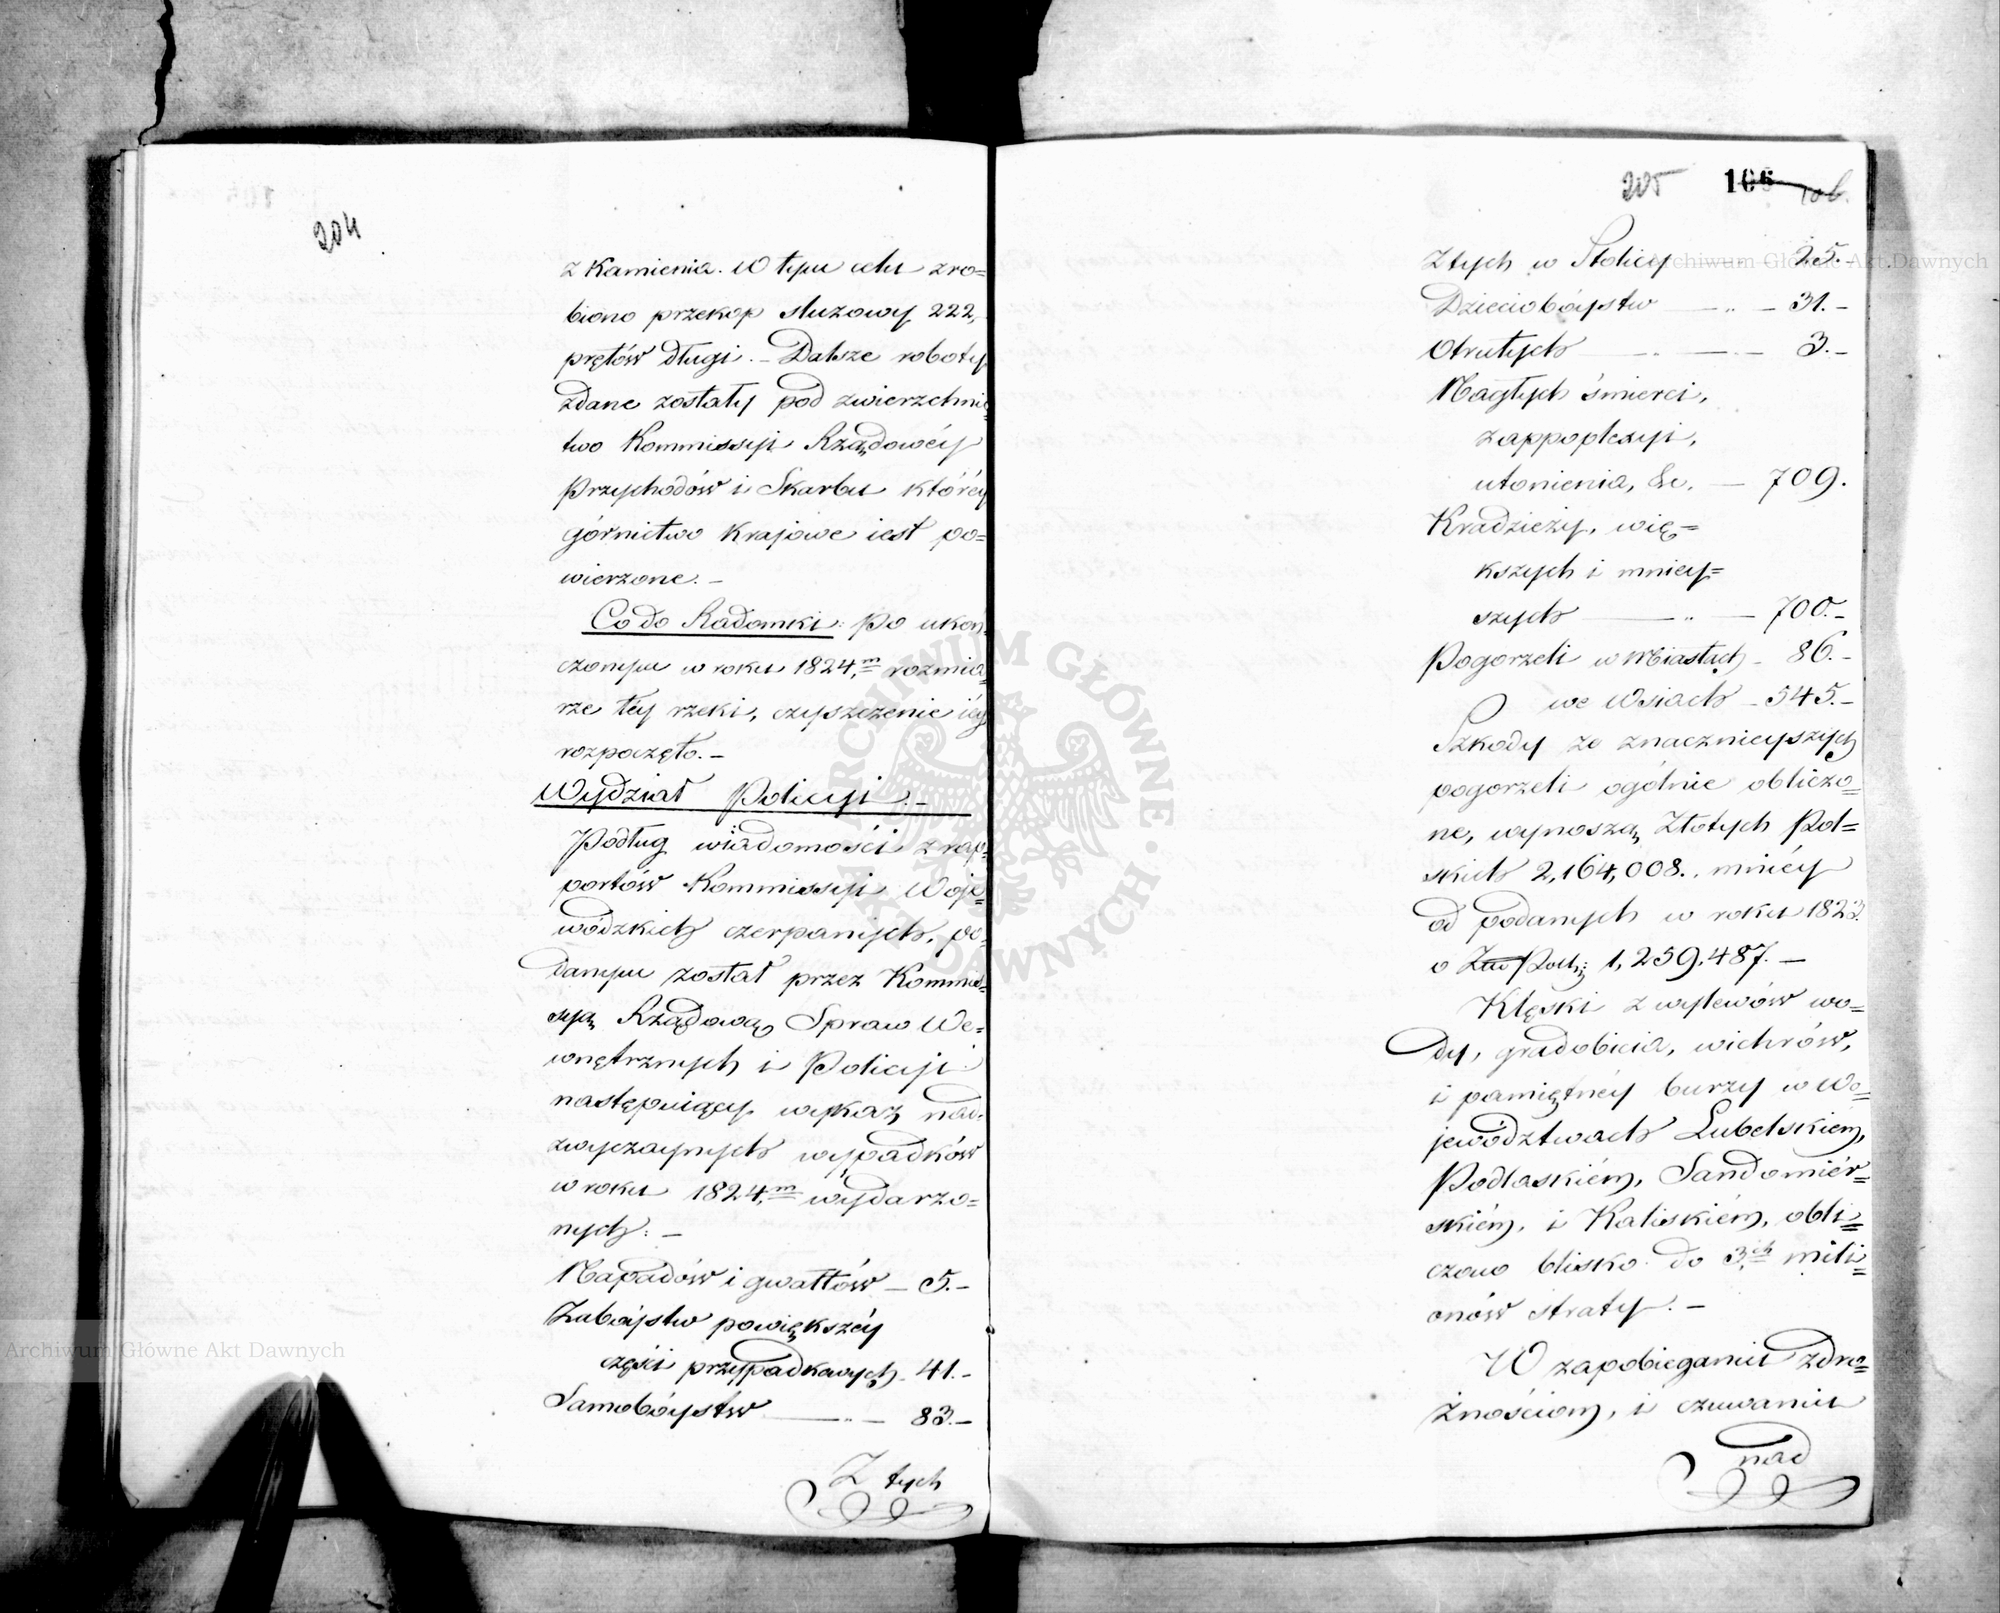 204
z Kamienia. W tym celu zro=
biono przekop śluzowy 222,
prętów długi. – Dalsze roboty
zdane zostały pod zwierzchnic=
two Kommissyi Rządowéy
Przychodów i Skarbu któréy
górnictwo Krajowe iest po=
wierzone. –
Co do Radomki: po ukoń=
czonym w roku 1824,m rozmia=
rze téy rzeki, czyszczenie iéy
rozpoczęto. –
Wydział Policyi. –
Podług wiadomości z rap=
portów Kommissyi Woje=
wódzkich czerpanych, po=
danym został przez Kommis=
syą Rządową Spraw We=
wnętrznych i Policyi
następuiący wykaz nad=
zwyczaynych wypadków
w roku 1824,m wydarzo=
nych: –
Napadów i gwałtów – 5. –
Zabóystw powiększéy
części przypadkowych – 41. –
Samobóystw – „ – 83. –
Z tych
205 106 106.
Z tych w Stolicy 25. –
Dzieciobóystw – „ – 31. –
Otrutych – „ – 3. –
Nagłych śmierci,
z appoplexyi,
utonienia, &c. – 709.
Kradzieży, wię=
kszych i mniey=
szych – „ – 700. –
Pogorzeli w Miastach – 86. –
we Wsiach – 545. –
Szkody ze znacznieyszych
pogorzeli ogólnie obliczo=
ne, wynoszą Złotych Pol=
skich 2,164,008., mniéy
od podanych w roku 1823.
o Polch: 1,259,487. –
Klęski z wylewów wo=
dy, gradobicia, wichrów,
i pamiętnéy burzy w Wo=
jewództwach Lubelskiém,
Podlaskiém, Sandomiér=
skiém, i Kaliskiém, obli=
czono blisko do 3,ch mili=
onów straty. –
W zapobieganiu zdro=
żnościom, i czuwaniu
nad
Archiwum Główne Akt Dawnych
Archiwum Główne Akt Dawnych
ARCHIWUM GŁÓWNE AKT DAWNYCH